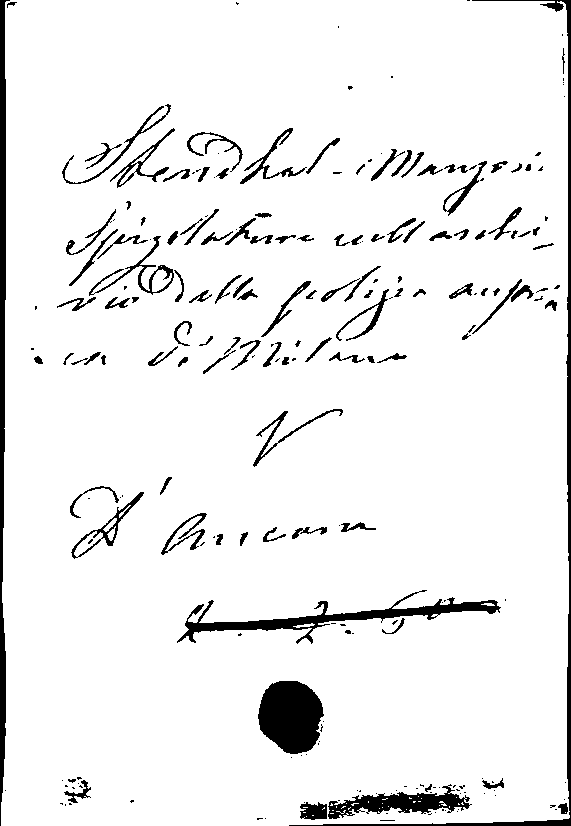 Stendhal - Manzoni.
Spigolature nell archi-
vio della polizia austria
ca di Milano
V
D'Ancona